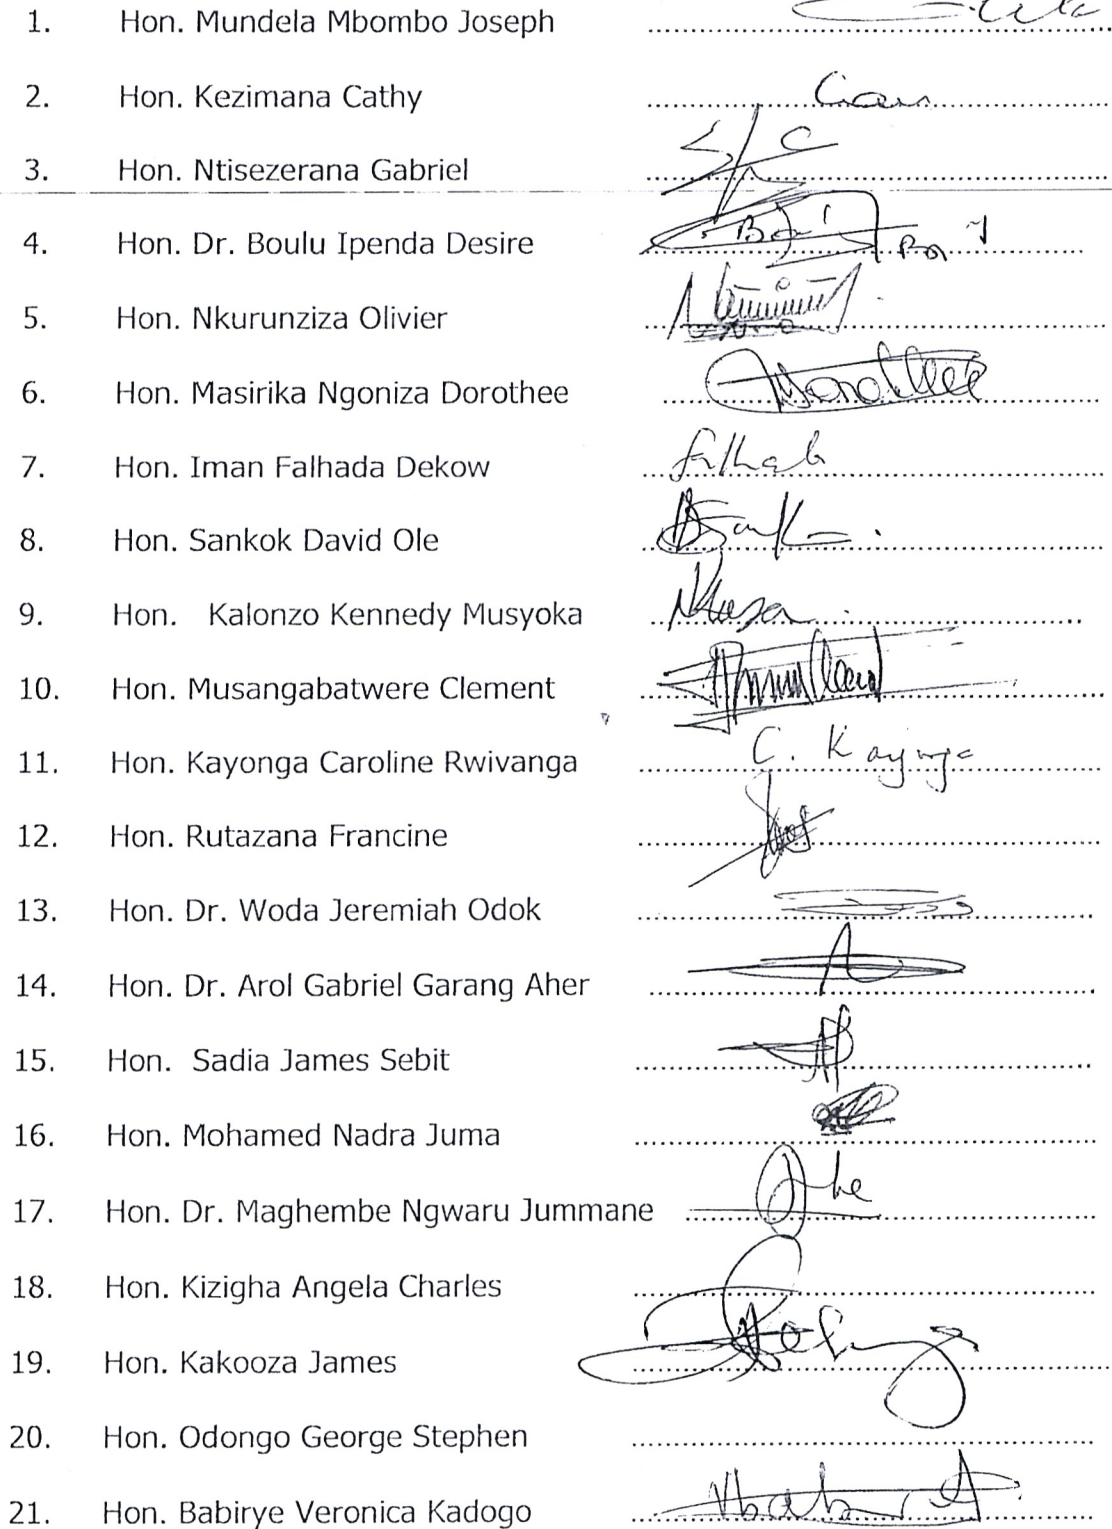 1. Hon. Mundela Mbombo Joseph
2. Hon. Kezimana Cathy
3. Hon. Ntisezerana Gabriel
4. Hon. Dr. Boulu Ipenda Desire
5. Hon. Nkurunziza Olivier
6. Hon. Masirika Ngoniza Dorothee Dorothee
7. Hon. Iman Falhada Dekow
8. Hon. Sankok David Ole
9. Hon. Kalonzo Kennedy Musyoka
10. Hon. Musangabatwere Clement
11. Hon. Kayonga Caroline Rwivanga C. Kayonga
12. Hon. Rutazana Francine
13. Hon. Dr. Woda Jeremiah Odok
14. Hon. Dr. Arol Gabriel Garang Aher
15. Hon. Sadia James Sebit
16. Hon. Mohamed Nadra Juma
17. Hon. Dr. Maghembe Ngwaru Jummane
18. Hon. Kizigha Angela Charles
19. Hon. Kakooza James
20. Hon. Odongo George Stephen
21. Hon. Babirye Veronica Kadogo